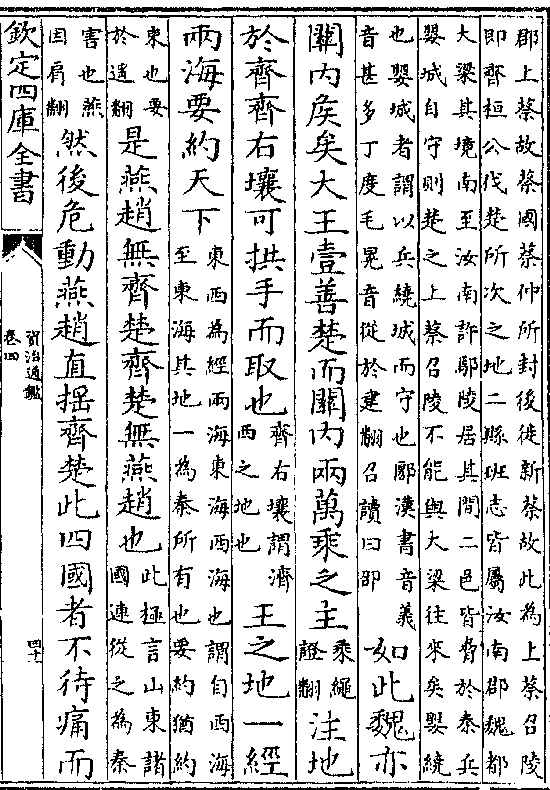 郡上蔡故蔡國蔡仲所封後徙新蔡故此為上蔡召陵
即齊桓公伐楚所次之地二縣班志皆屬汝南郡魏都
大梁其境南至汝南許鄢陵居其間二邑皆脅於秦兵
嬰城自守則楚之上蔡召陵不能與大梁往來矣嬰繞
也嬰城者謂以兵繞城而守也郾漢書音義
音甚多丁度毛晃音從於建翻召讀曰邵
如此魏亦
關内矦矣大王壹善楚而關内兩萬乘之主
乘繩
證翻
注地
於齊齊右壤可拱手而取也
齊右壤謂濟
西之地也
王之地一經
兩海要約天下
東西為經兩海東海西海也謂自西海
至東海其地一為秦所有也要約猶約
東也要
於遥翻
是燕趙無齊楚齊楚無燕趙也
此極言山東諸
國連從之為秦
害也燕
因肩翻
然後危動燕趙直揺齊楚此四國者不待痛而
欽定四庫全書
資治通鑑
卷四
四十